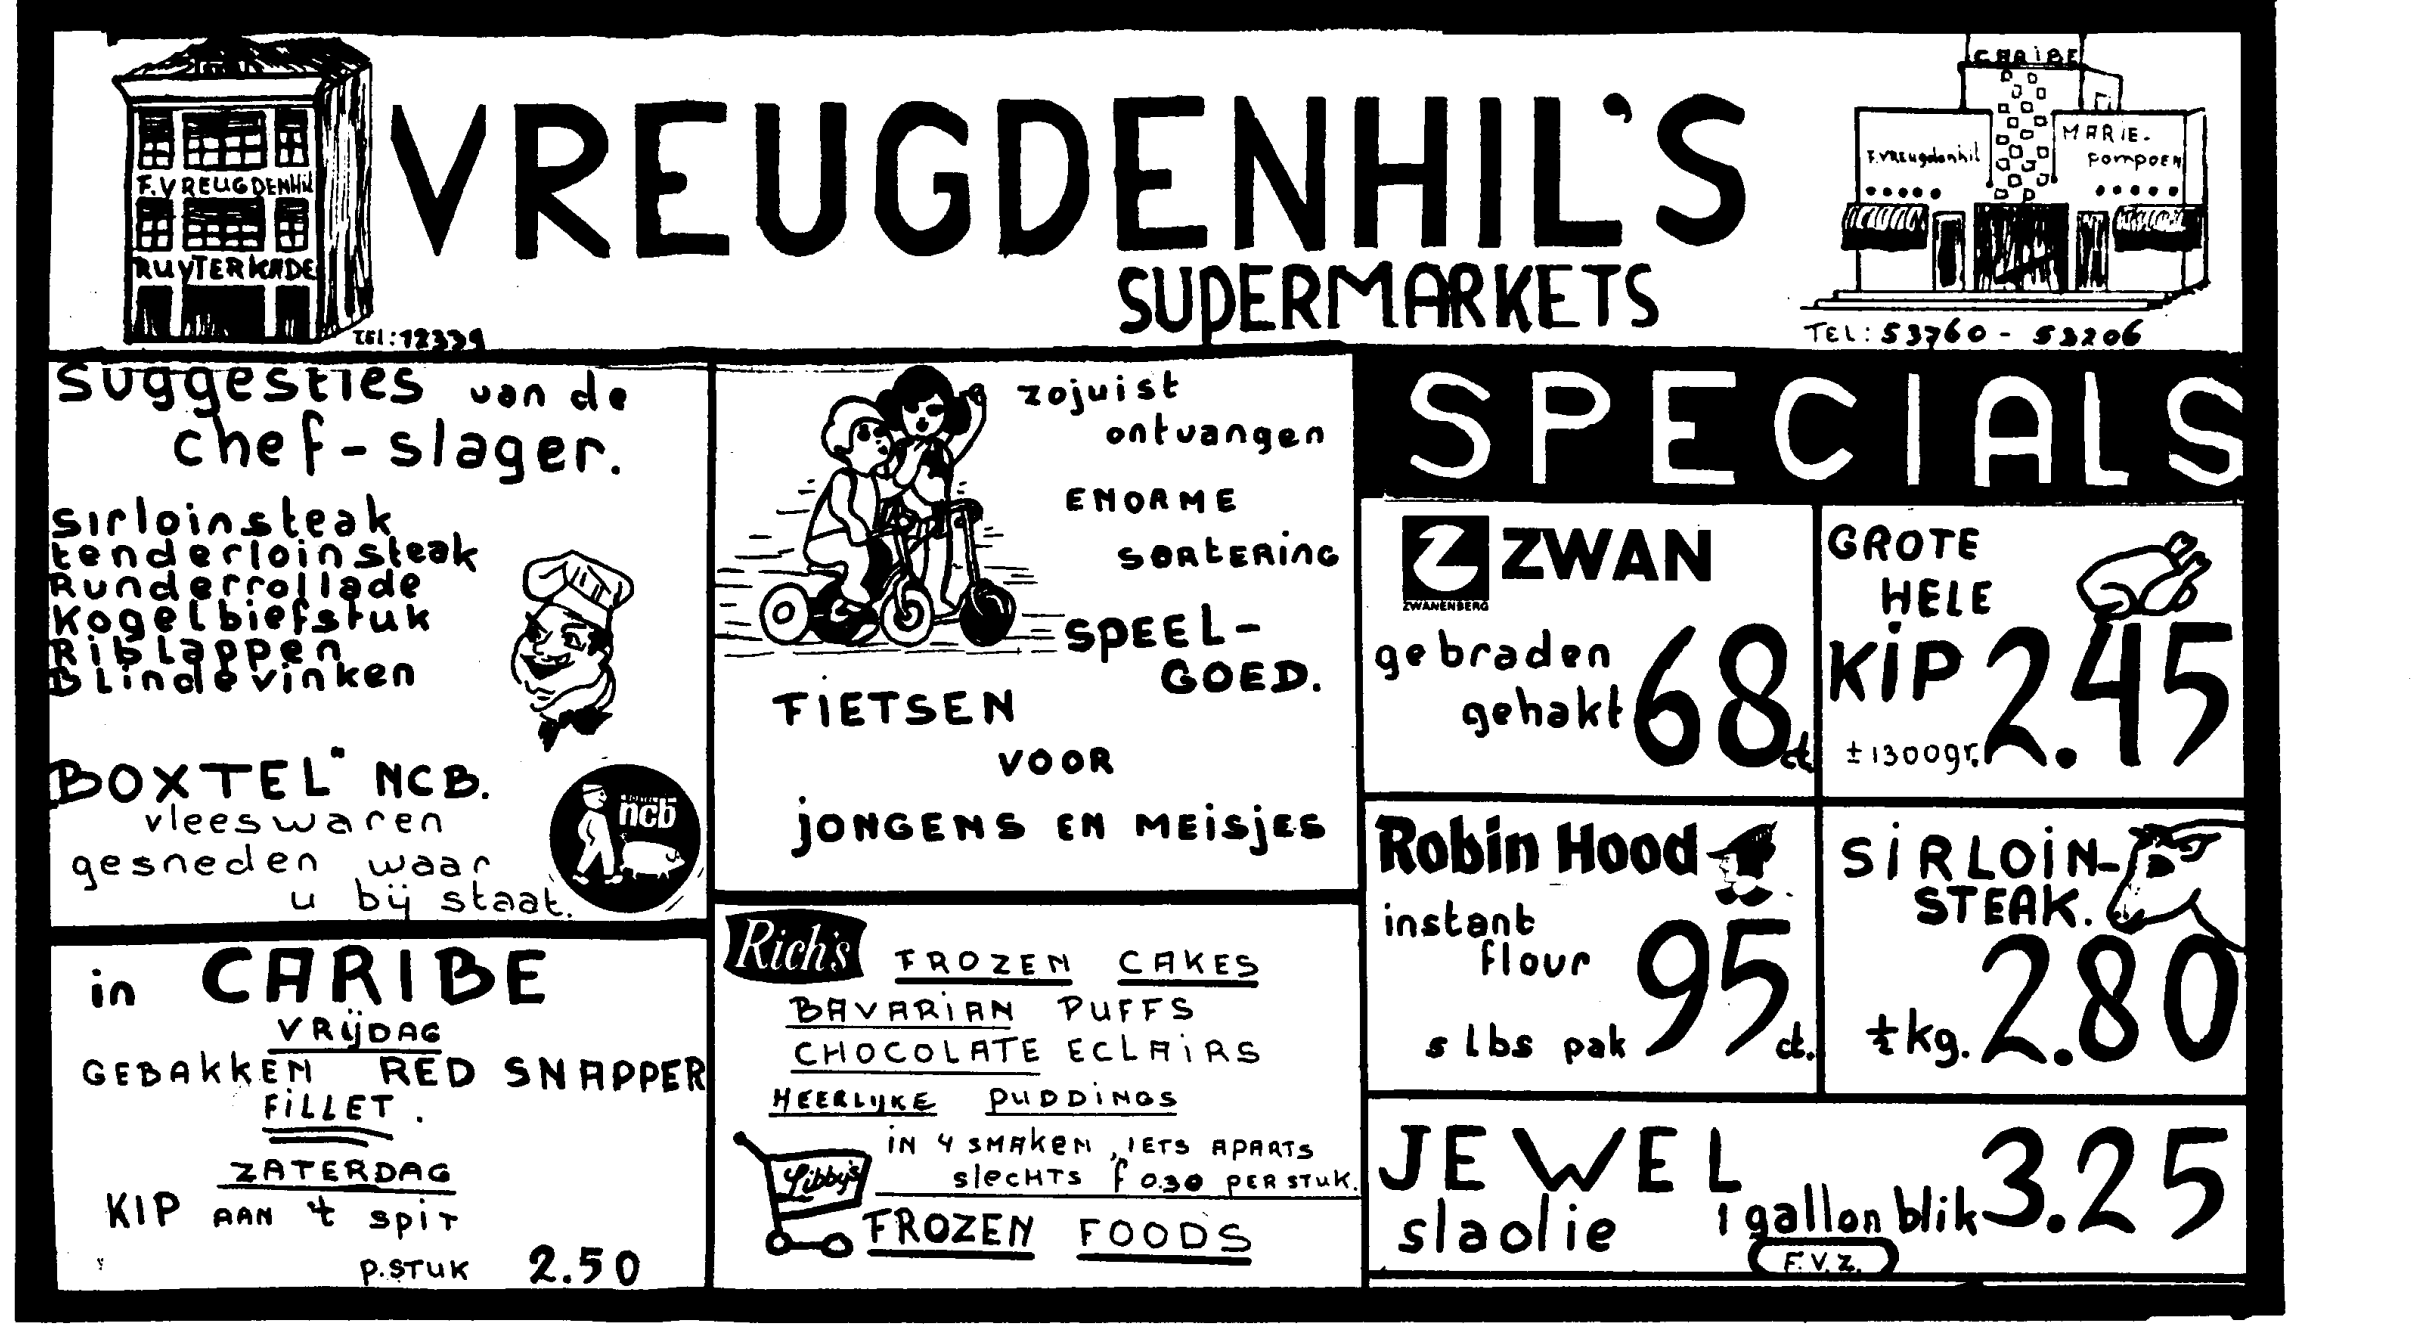 F. VREUGDENHIL
RUYTERKADE
TEL: 12339
VREUGDENHIL'S
SUPERMARKETS
CARIBE
F. VREUGDENHIL
MARIE-
POMPOEN
TEL: 53760 - 53206
Suggesties van de
chef-slager.
Sirloinsteak
tenderloinsteak
Runderrollade
Kogelbiefstuk
Riblappen
Blindevinken
BOXTEL" NCB.
vleeswaren
gesneden waar
u bij staat.
ncb
in CARIBE
VRIJDAG
GEBAKKEN RED SNAPPER
FILLET.
ZATERDAG
KIP AAN 't SPIT
P.STUK 2.50
zojuist
ontvangen
ENORME
SORTERING
SPEEL-
GOED.
FIETSEN
VOOR
JONGENS EN MEISJES
Rich's FROZEN CAKES
BAVARIAN PUFFS
CHOCOLATE ECLAIRS
HEERLIJKE PUDDINGS
IN 4 SMAKEN, IETS APARTS
SLECHTS f 0.30 PER STUK.
Libby's
FROZEN FOODS
SPECIALS
ZWAN
ZWANENBERG
gebraden
gehakt 68 ct
GROTE
HELE
KIP 2.45
±1300gr.
Robin Hood
instant
flour
5 lbs pak 95 ct.
SIRLOIN-
STEAK.
½ kg. 2.80
JEWEL
slaolie 1 gallon blik 3.25
F.V.Z.